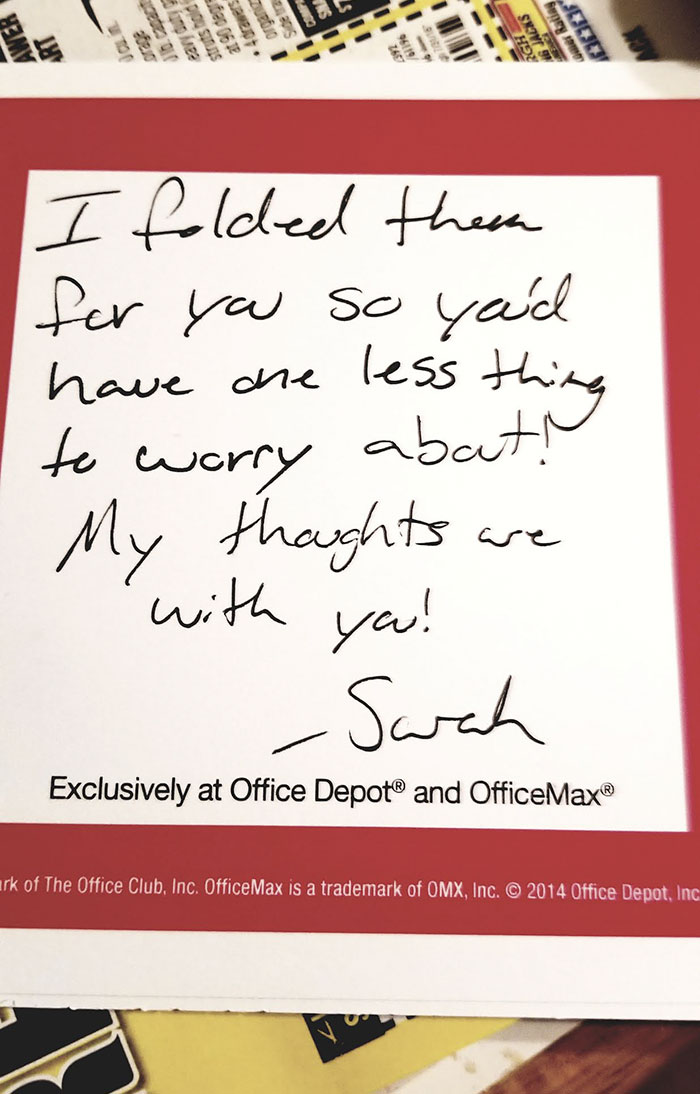 I folded them
for you so you'd
have one less thing
to worry about!
My thoughts are
with you!
– Sarah
Exclusively at Office Depot® and OfficeMax®
of The Office Club, Inc. OfficeMax is a trademark of OMX, Inc. © 2014 Office Depot, Inc